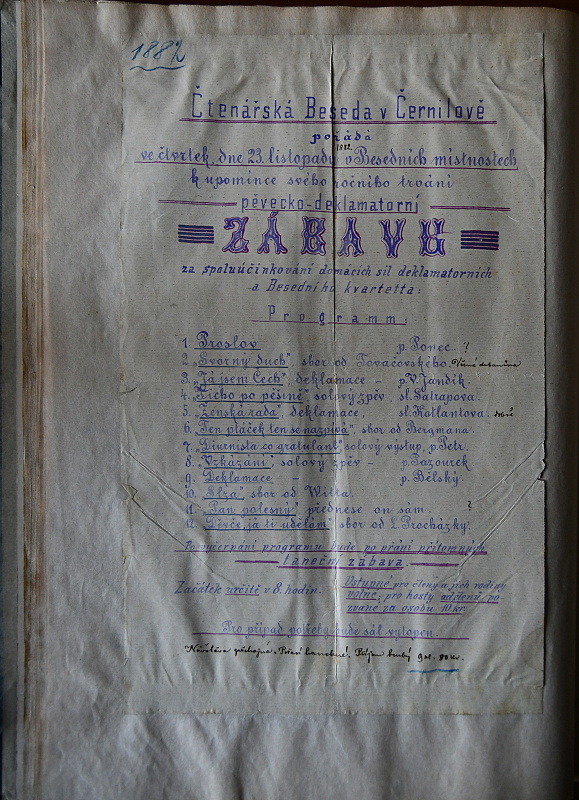 1882
Čtenářská Beseda v Černilově
pořádá
1882
ve čtvrtek, dne 23. listopadu v Besedních místnostech
k upomínce svého ročního trvání
pěvecko-deklamatorní
ZÁBAVU
za spoluúčinkování domácích sil deklamatorních
a Besedního kvartetta:
Programm:
1. Proslov p. Ponec. !
2. „Svorný duch", sbor od Tovačovského.
3. „Já jsem Čech", deklamace – p. V. Jandík.
4. „Ticho po pěšině" solový zpěv sl. Satrapova.
5. „Ženská rada", deklamace, sl. Kotlantova.
6. „Ten ptáček ten se nazpívá", sbor od Bergmana.
7. „Diurnista co gratulant" solový výstup, p. Petr.
8. „Vzkázání", solový zpěv – p. Pazourek
9. Deklamace – p. Bělský.
10. „Elza" sbor od Witta.
11. „Pan polesný", přednese on sám. ?
12. „Děvče, já ti udělám" sbor od L. Procházky.
Po vyčerpání programmu bude po přání přítomných
taneční zábava.
Začátek určitě v 8. hodin.
Vstupné pro členy a jich rodiny
volné; pro hosty od členů po-
zvané za osobu 10 kr.
Pro případ potřeby bude sál vytopen.
Návštěva přehojná. Příjem hrubý 9 zl. 80 kr.